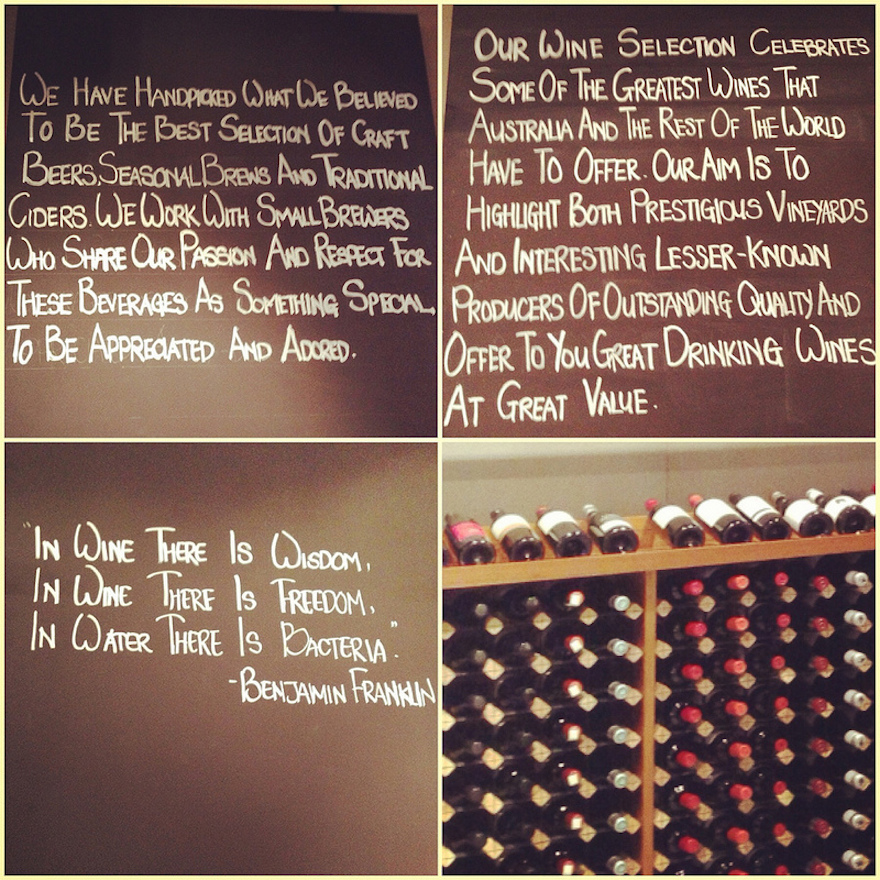 We Have Handpicked What We Believed
To Be The Best Selection Of Craft
Beers, Seasonal Brews And Traditional
Ciders. We Work With Small Brewers
Who Share Our Passion And Respect For
These Beverages As Something Special,
To Be Appreciated And Adored.
Our Wine Selection Celebrates
Some Of The Greatest Wines That
Australia And The Rest Of The World
Have To Offer. Our Aim Is To
Highlight Both Prestigious Vineyards
And Interesting Lesser-Known
Producers Of Outstanding Quality And
Offer To You Great Drinking Wines
At Great Value.
"In Wine There Is Wisdom,
In Wine There Is Freedom,
In Water There Is Bacteria."
-Benjamin Franklin